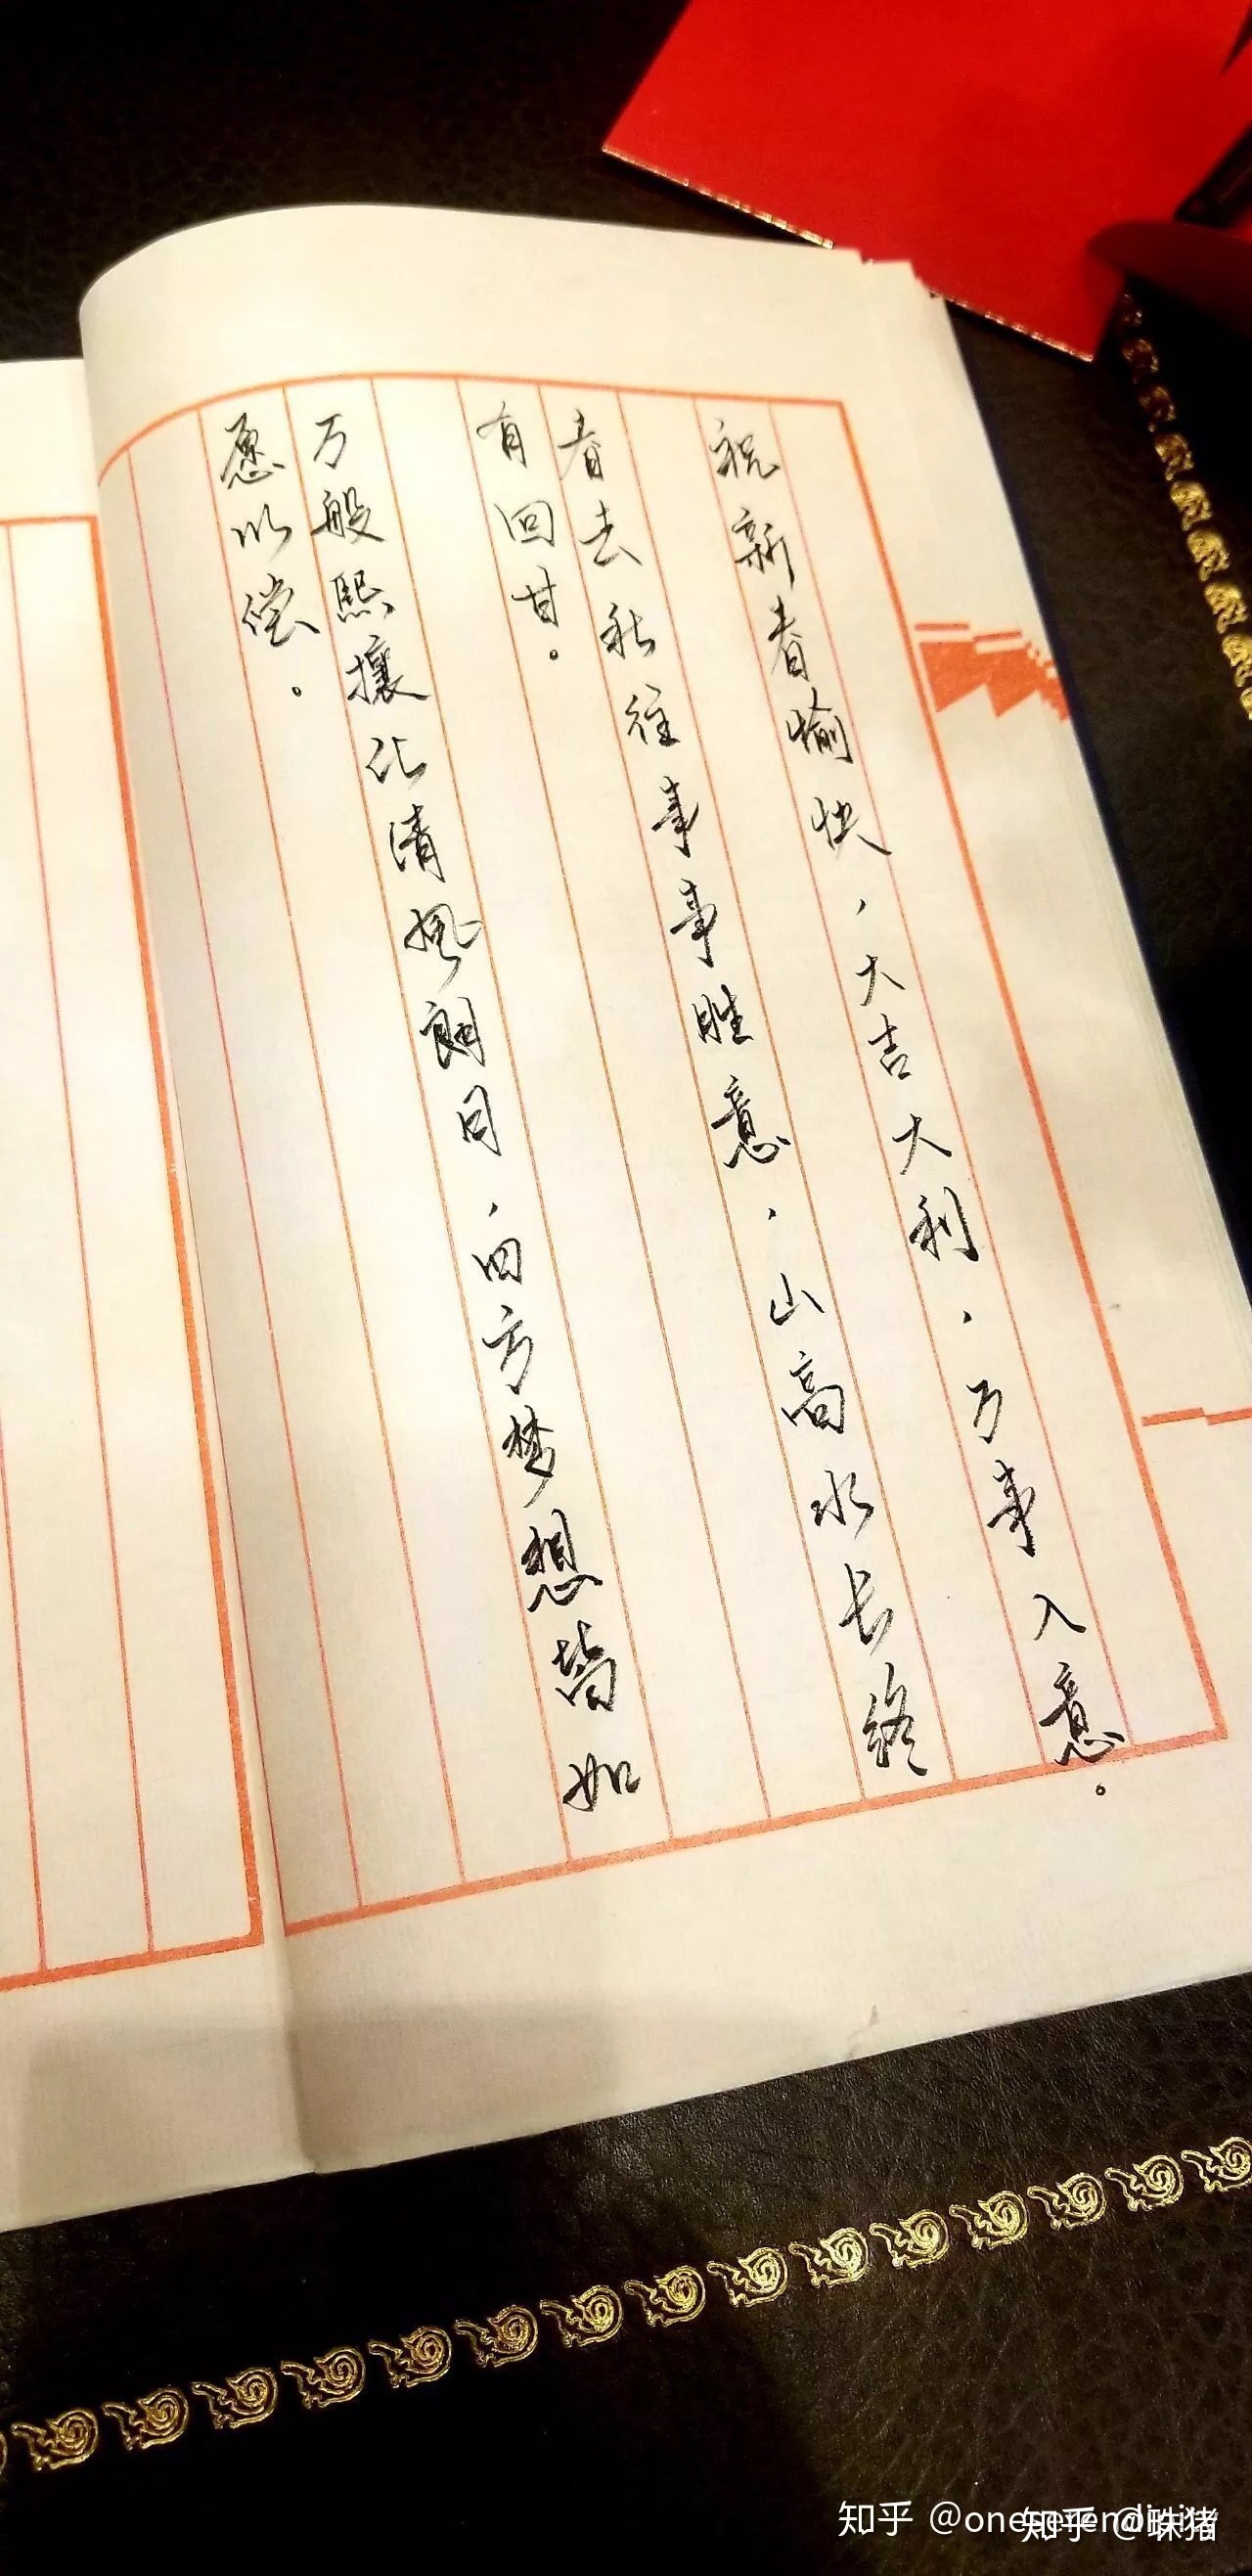 祝新春愉快，大吉大利，万事入意。
春去秋往事事胜意，山高水长终
有回甘。
万般熙攘化清风朗日，四方梦想皆如
愿以偿。
知乎 @
知乎 @蛛猪